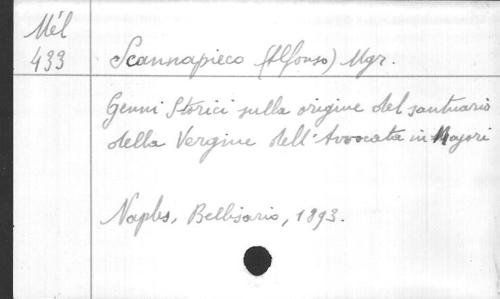 Mél
433
Scannapieco (Alfonso) Mgr.
Genni Storici sulla origine del santuario
della Vergine dell'Avvocata in Majori
Naples, Bellisario, 1893.